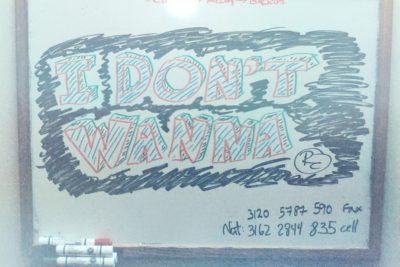 I DON'T
WANNA
PC
3120 5787 590 Fax
Nat: 3162 2844 835 cell